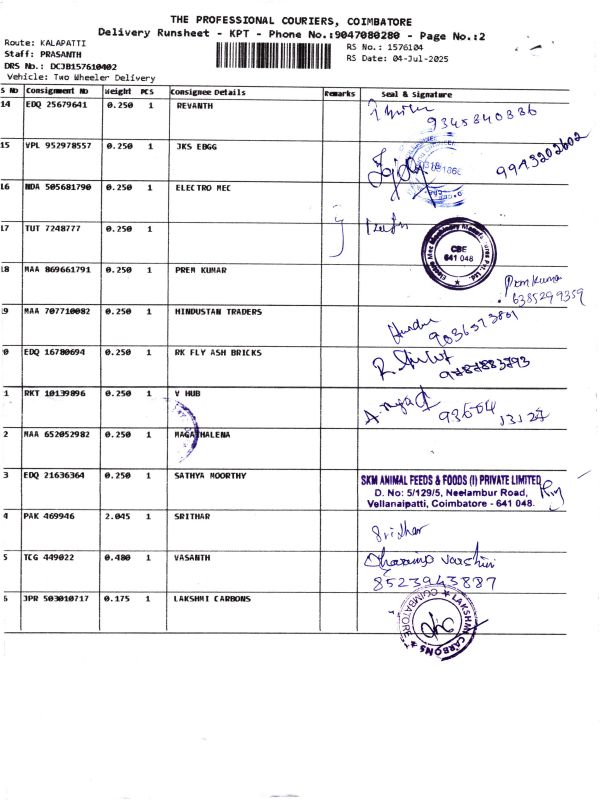 THE PROFESSIONAL COURIERS, COIMBATORE
Delivery Runsheet - KPT - Phone No.:9047080280 - Page No.:2
Route: KALAPATTI
RS No.: 1576104
Staff: PRASANTH
RS Date: 04-Jul-2025
DRS No.: DCJB157610402
Vehicle: Two Wheeler Delivery
S No Consignment No Weight PCS Consignee Details Remarks Seal & Signature
14 EDQ 25679641 0.250 1 REVANTH
9345840836
15 VPL 952978557 0.250 1 JKS EBGG
9943202602
16 NDA 505681790 0.250 1 ELECTRO MEC
17 TUT 7248777 0.250 1
CBE
641 048
18 MAA 869661791 0.250 1 PREM KUMAR
Prem Kumar
6385299359
19 MAA 707710082 0.250 1 HINDUSTAN TRADERS
9036573801
0 EDQ 16780694 0.250 1 RK FLY ASH BRICKS
9787883793
1 RKT 10139896 0.250 1 V HUB
93604 13127
2 MAA 652052982 0.250 1 MAGATHALENA
3 EDQ 21636364 0.250 1 SATHYA MOORTHY
SKM ANIMAL FEEDS & FOODS (I) PRIVATE LIMITED
D. No: 5/129/5, Neelambur Road,
Vellanaipatti, Coimbatore - 641 048.
4 PAK 469946 2.045 1 SRITHAR
Sridhar
5 TCG 449022 0.480 1 VASANTH
8523943887
6 JPR 503010717 0.175 1 LAKSHMI CARBONS
LAKSHMI CARBONS
COIMBATORE